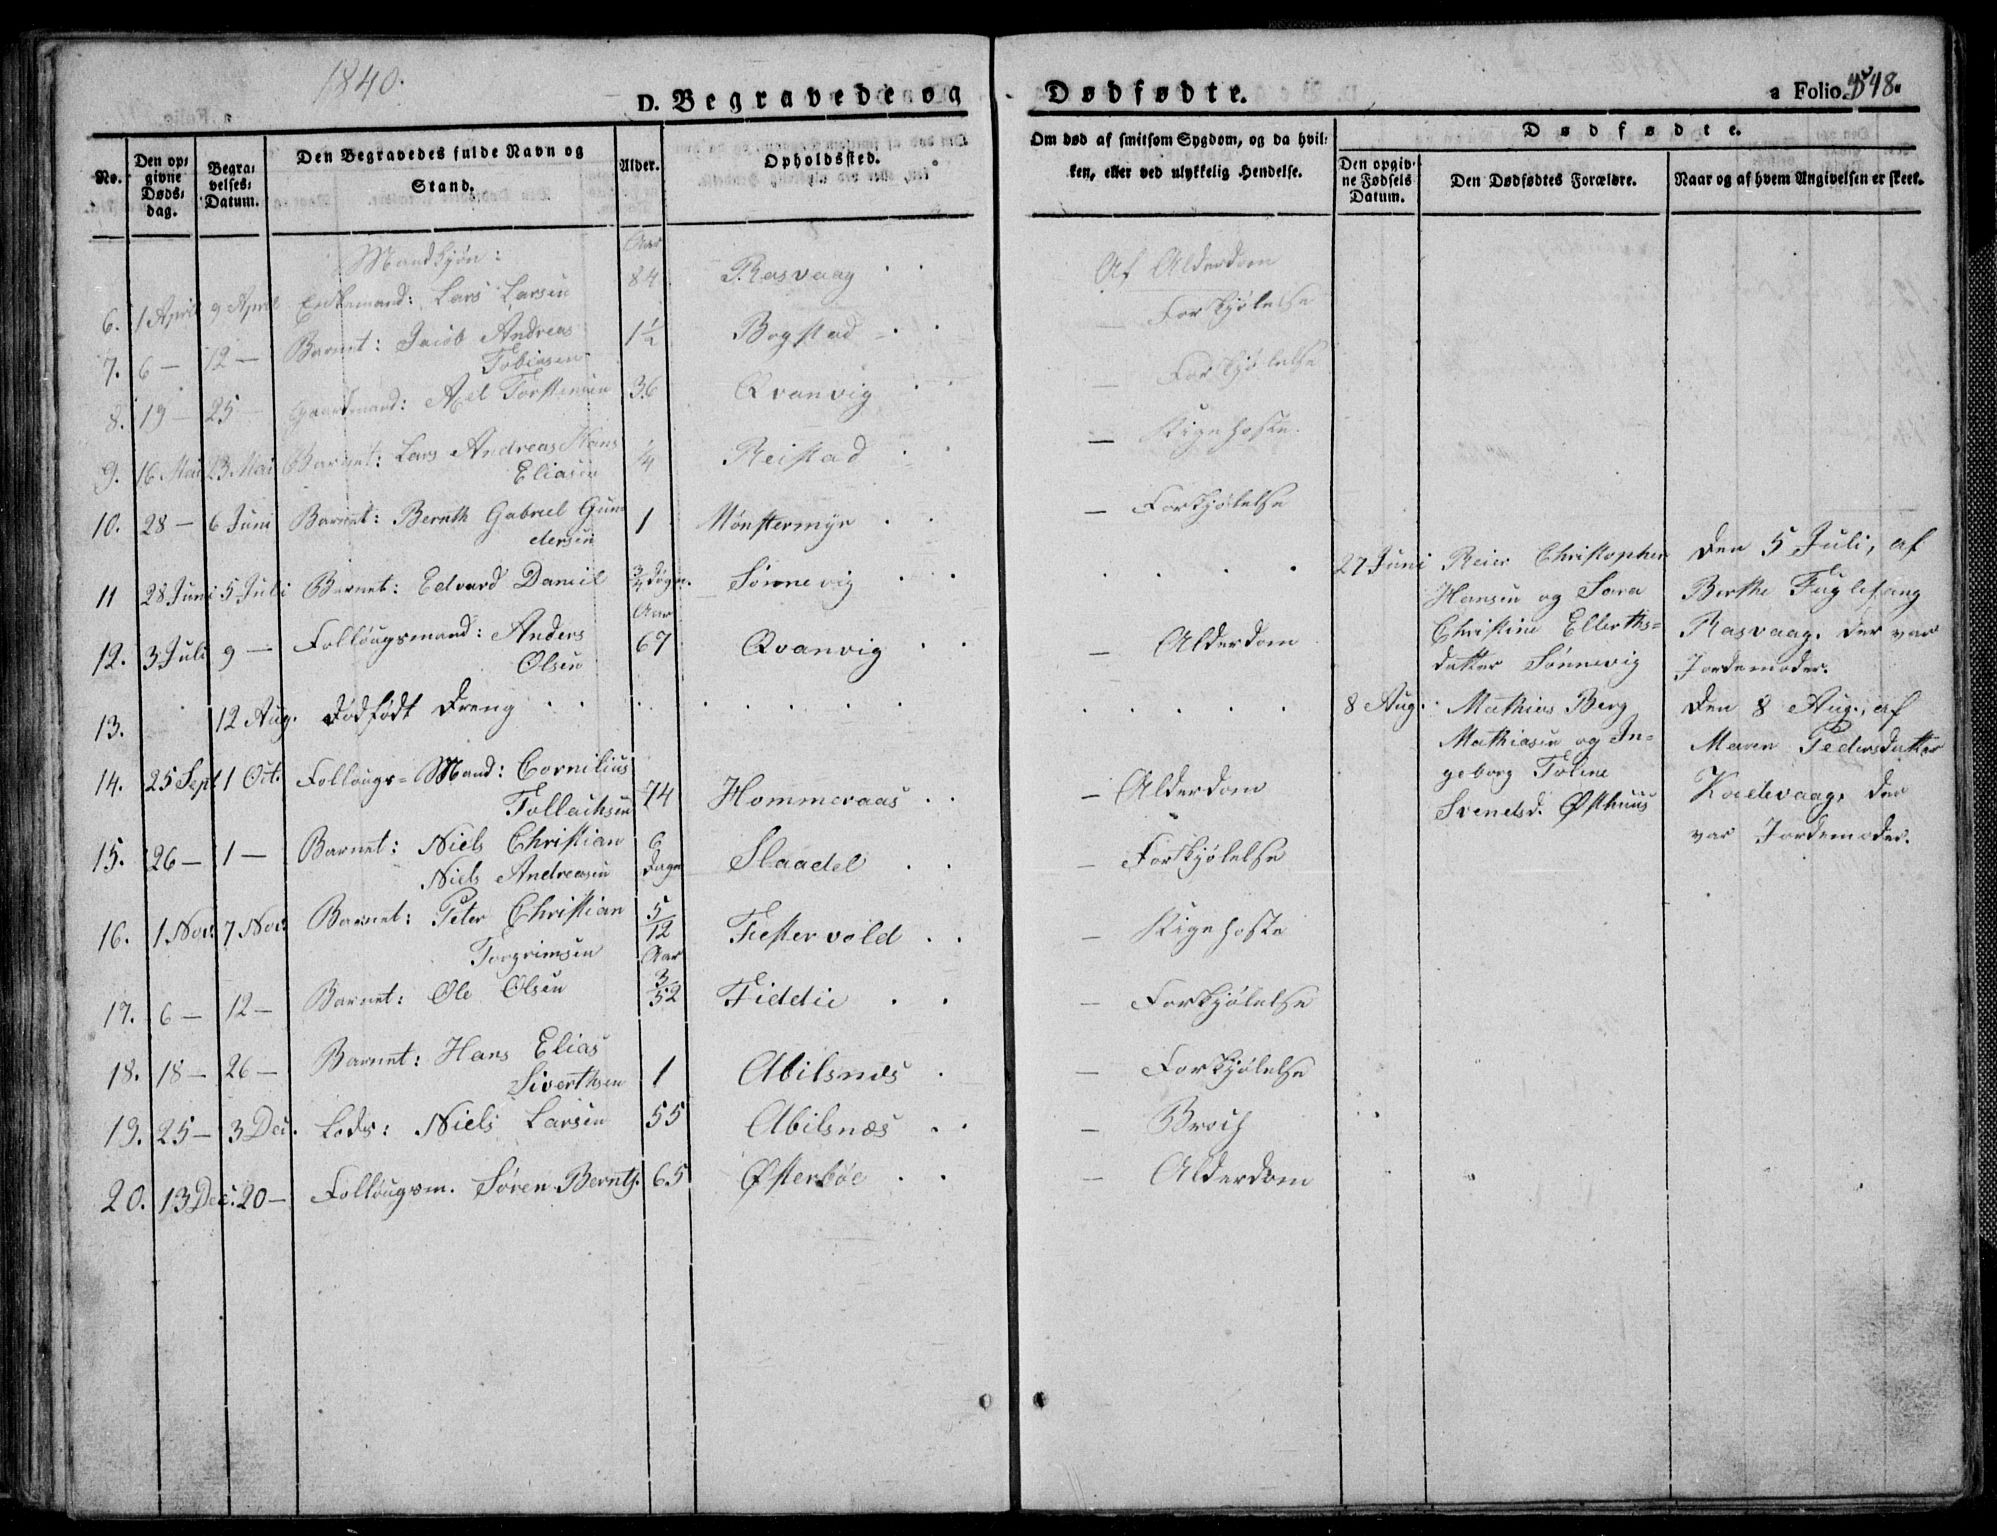 1840.
D. Begravede og Dødfødte.
a Folio 348.
No.
Den opgivne Dødsdag.
Begravelses-Datum.
Den Begravedes fulde Navn og Stand.
Alder.
Opholdssted.
Om død af smitsom Sygdom, og da hvilken, eller ved ulykkelig Hendelse.
Dødfødte.
Den opgivne Fødsels Datum.
Den Dødfødtes Forældre.
Naar og af hvem Angivelsen er skeet.
Mandkjøn: Aar
6. 1 April 9 April Enkemand: Lars Larsen 84 Rasvaag . . Af Alderdom
7. 6 — 12 — Barnet: Jacob Andreas Tobiasen 1½ Bogstad . . — Forkjølelse
8. 19 — 25 — Gaardmand: Axel Torstensen 36 Qvanvig . . — Forkjølelse
9. 16 Mai 23 Mai Barnet: Lars Andreas Hans Eliasen ¼ Reistad — Kigehoste
10. 28 — 6 Juni Barnet: Bernth Gabriel Gundersen 1 Mønstermyr . . — Forkjølelse
11 28 Juni 5 Juli Barnet: Edvard Daniel ¾ Døgn. Sønnevig . . . . . . . 27 Juni Reier Christopher Hansen og Sara Christine Ellerthsdatter Sønnevig Den 5 Juli, af Berthe Fuglesang Rasvaag, der var Jordemoder.
12. 3 Juli 9 — Follougsmand: Anders Olsen Aar 67 Qvanvig . . — Alderdom
13. 12 Aug. Dødfødt Dreng . . . . . . . 8 Aug. Mathias Berg Mathiasen og Ingeborg Toline Svendsd. Østhuus Den 8 Aug., af Maren Pedersdatter Kodevaag, der var Jordemoder.
14. 25 Sept 1 Oct. Follougs-Mand: Cornilius Tollachsen 74 Hommeraas . . — Alderdom
15. 26 — 1 — Barnet: Niels Christian Niels Andreasen 6 Dage Slaadel . . — Forkjølelse
16. 1 Nov: 7 Nov: Barnet: Peter Christian Torgrimsen 5/12 Aar Fiestervold . . — Kigehoste
17. 6 — 12 — Barnet: Ole Olsen 3/52 Fiddie . . — Forkjølelse
18. 18 — 26 — Barnet: Hans Elias Siverthsen 1 Abilsnæs . — Forkjølelse
19. 25 — 3 Dec. Lods: Niels Larsen 55 Abilsnæs . . — Broch
20. 13 Dec: 20 — Follougsm. Søren Bernths. 65 Østerbøe . . — Alderdom